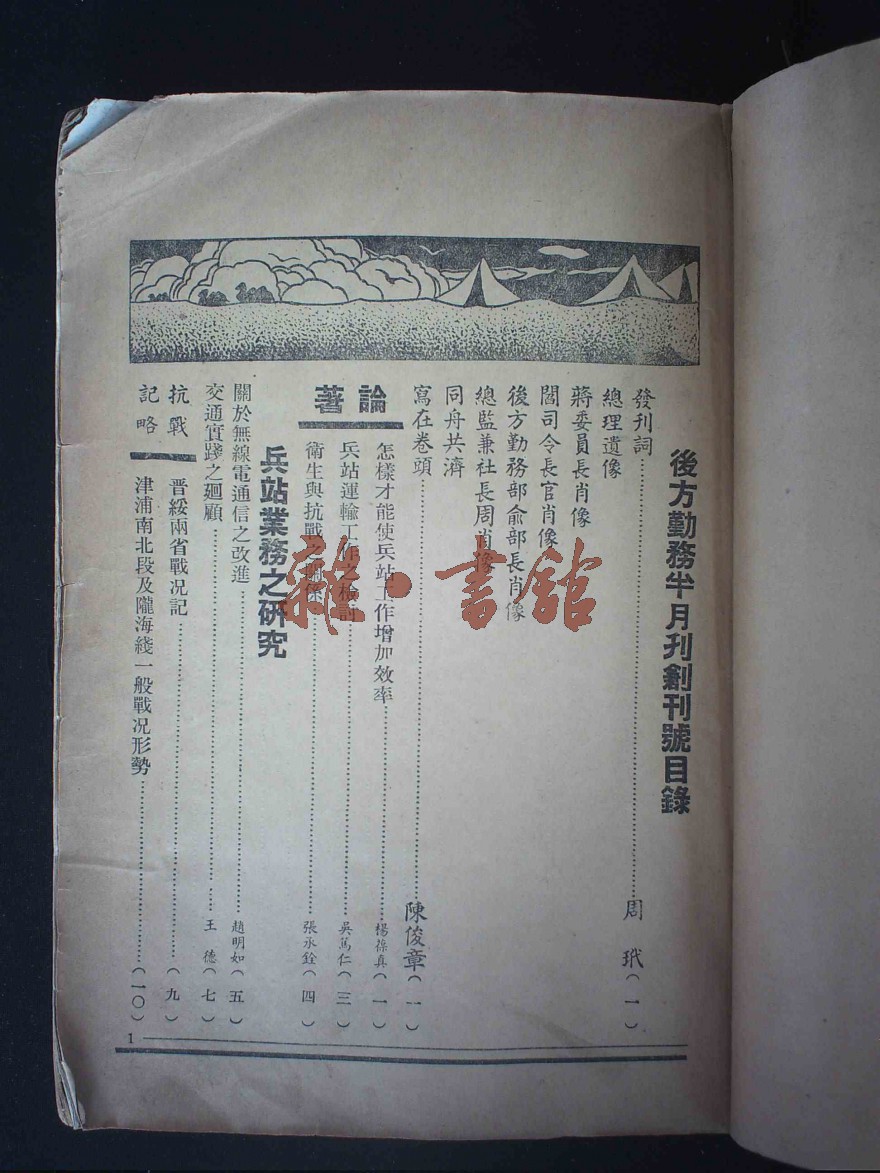 後方勤務半月刋創刊號目錄
發刊詞……周 玳（一）
總理遺像
蔣委員長肖像
閻司令長官肖像
後方勤務部俞部長肖像
總監兼社長周肖像
同舟共濟
寫在卷頭……陳俊章（一）
論著
怎樣才能使兵站工作增加效率……楊葆真（一）
兵站運輸工作之檢討……吳篤仁（三）
衛生與抗戰之關係……張永銓（四）
兵站業務之研究
關於無線電通信之改進……趙明如（五）
交通實踐之廻顧……王 德（七）
抗戰記略
晋綏兩省戰况記……（九）
津浦南北段及隴海綫一般戰况形勢……（一〇）
1
雜·書館